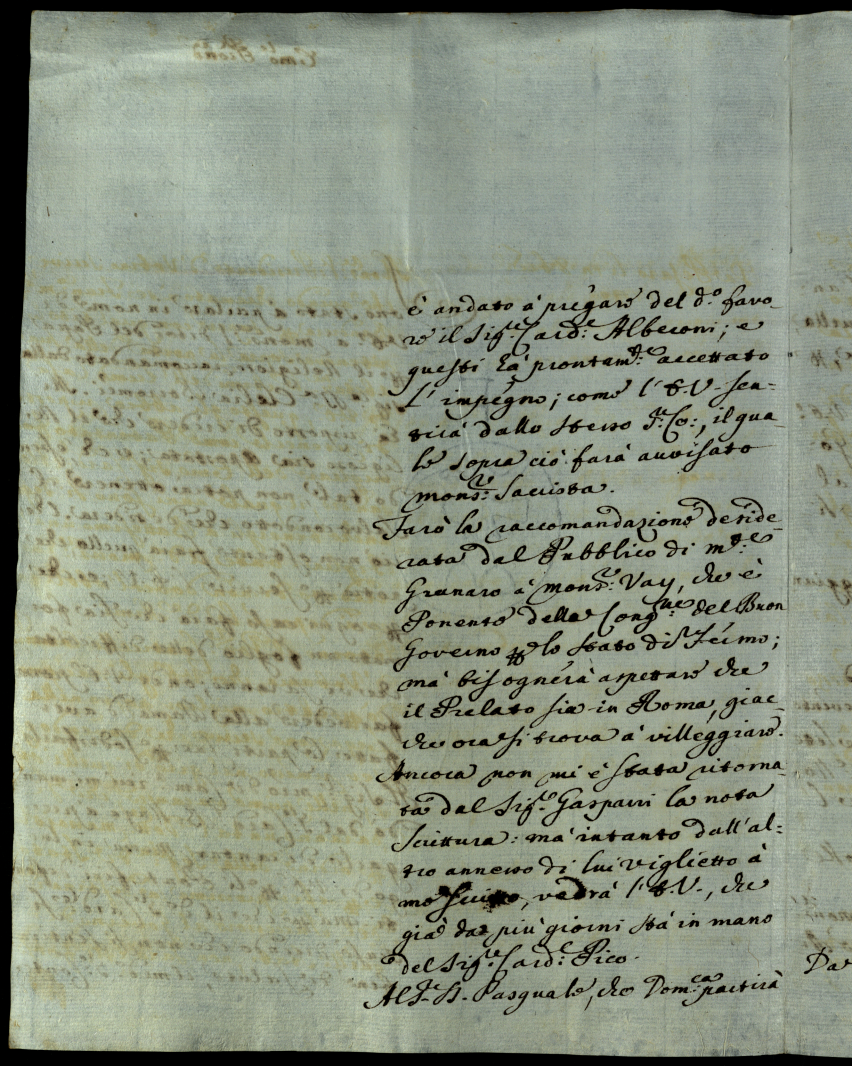 è andato à pregare del d.º favo-
re il Sig.r Card.e Alberoni; e
questi hà prontam.te accettato
l'impegno; come l'E.V. sen-
tirà dallo stesso P. Co:, il qua-
le sopra ciò farà avvisato
mons.r Sacrista.
Farò la raccomandazione deside-
rata dal Pubblico di m.te
Granaro à mons.r Vay, che è
Ponente della Cong.ne del Buon
Governo per lo Stato di Fermo;
mà bisognerà aspettare che
il Prelato sia in Roma, giac-
che ora si trova à villeggiare.
Ancora non mi è stata ritorna-
ta dal Sig.r Gasparri la nota
scrittura: mà intanto dall'al-
tro annesso di lui viglietto à
me scritto, vedrà l'E.V., che
già da più giorni stà in mano
del Sig.r Card.l Pico.
Al P. Pasquale, che Dom.ca partirà
Da